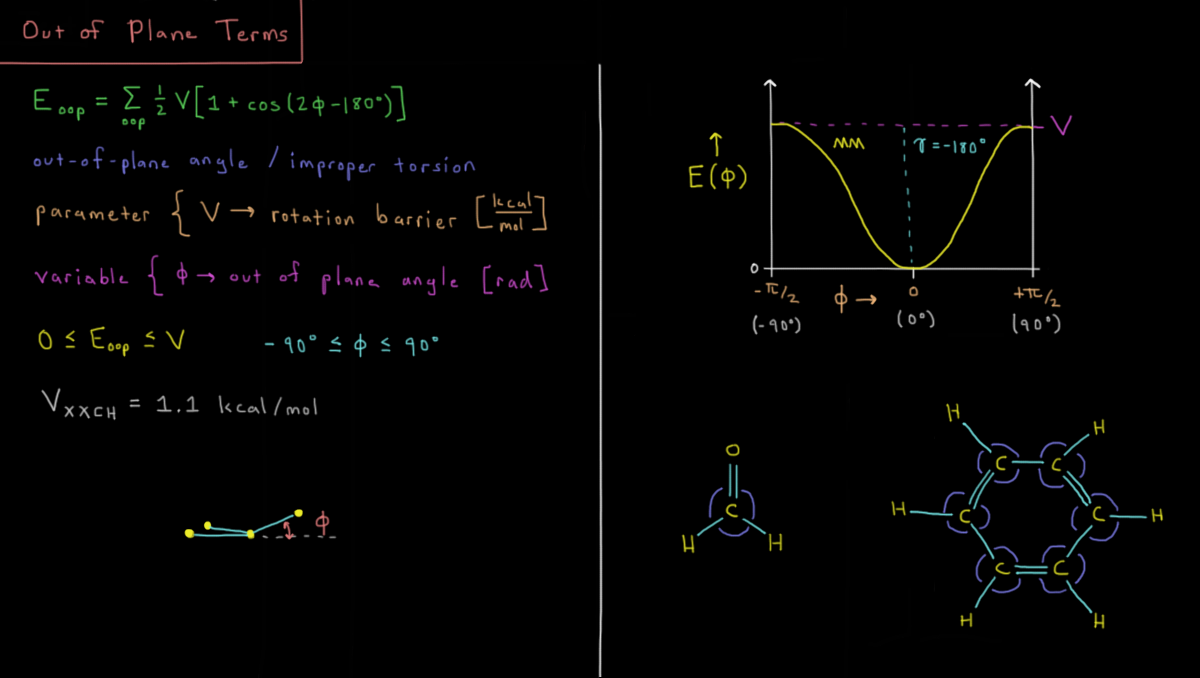 Out of Plane Terms
E oop = Σ oop ½ V[1 + cos(2φ-180°)]
out-of-plane angle / improper torsion
parameter { V → rotation barrier [kcal/mol]
variable { φ → out of plane angle [rad]
0 ≤ Eoop ≤ V -90° ≤ φ ≤ 90°
VXXCH = 1.1 kcal/mol
φ
V
MM γ=-180°
↑
E(φ)
0
-π/2 φ → 0 +π/2
(-90°) (0°) (90°)
O
C
H H
H H
C C
H C C H
C C
H H